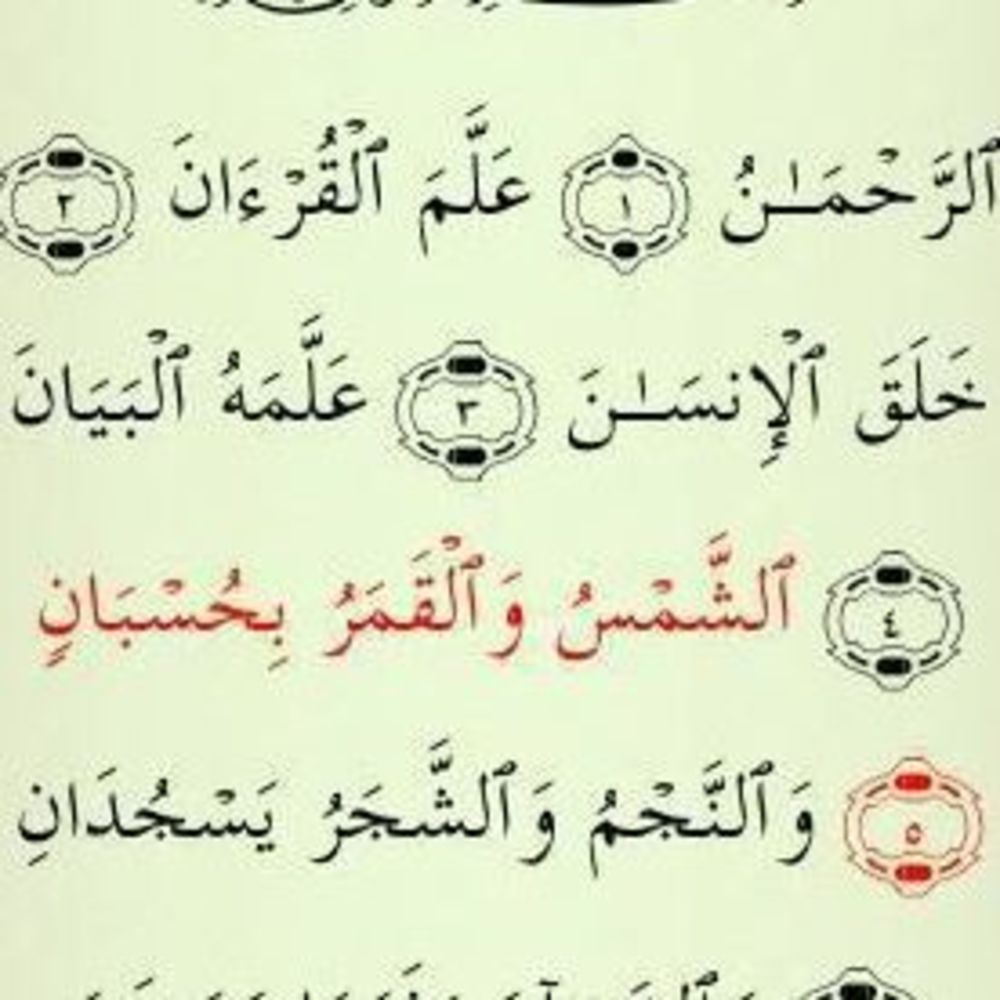 ٱلرَّحْمَـٰنُ ١ عَلَّمَ ٱلْقُرْءَانَ ٢
خَلَقَ ٱلْإِنسَـٰنَ ٣ عَلَّمَهُ ٱلْبَيَانَ
٤ ٱلشَّمْسُ وَٱلْقَمَرُ بِحُسْبَانٍ
٥ وَٱلنَّجْمُ وَٱلشَّجَرُ يَسْجُدَانِ